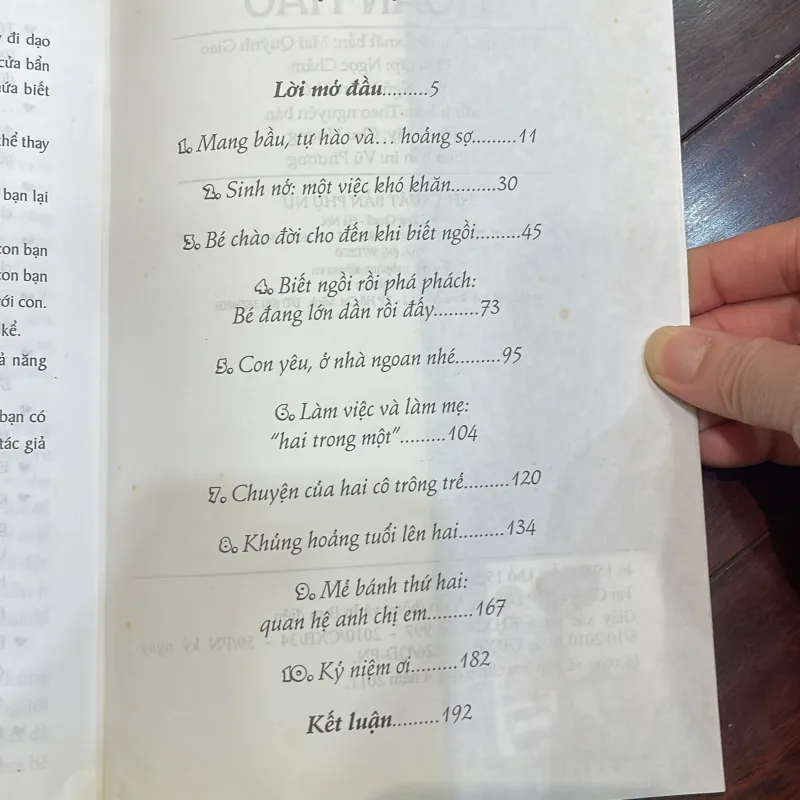 đi dạo
cửa bẩn
ứa biết
thể thay
bạn lại
con bạn
con bạn
với con.
kể.
ả năng
bạn có
tác giả
Lời mở đầu.........5
1. Mang bầu, tự hào và... hoảng sợ.........11
2. Sinh nở: một việc khó khăn.........30
3. Bé chào đời cho đến khi biết ngồi.........45
4. Biết ngồi rồi phá phách:
Bé đang lớn dần rồi đấy.........73
5. Con yêu, ở nhà ngoan nhé.........95
6. Làm việc và làm mẹ:
“hai trong một”.........104
7. Chuyện của hai cô trông trẻ.........120
8. Khủng hoảng tuổi lên hai.........134
9. Mẻ bánh thứ hai:
quan hệ anh chị em.........167
10. Kỷ niệm ơi.........182
Kết luận.........192